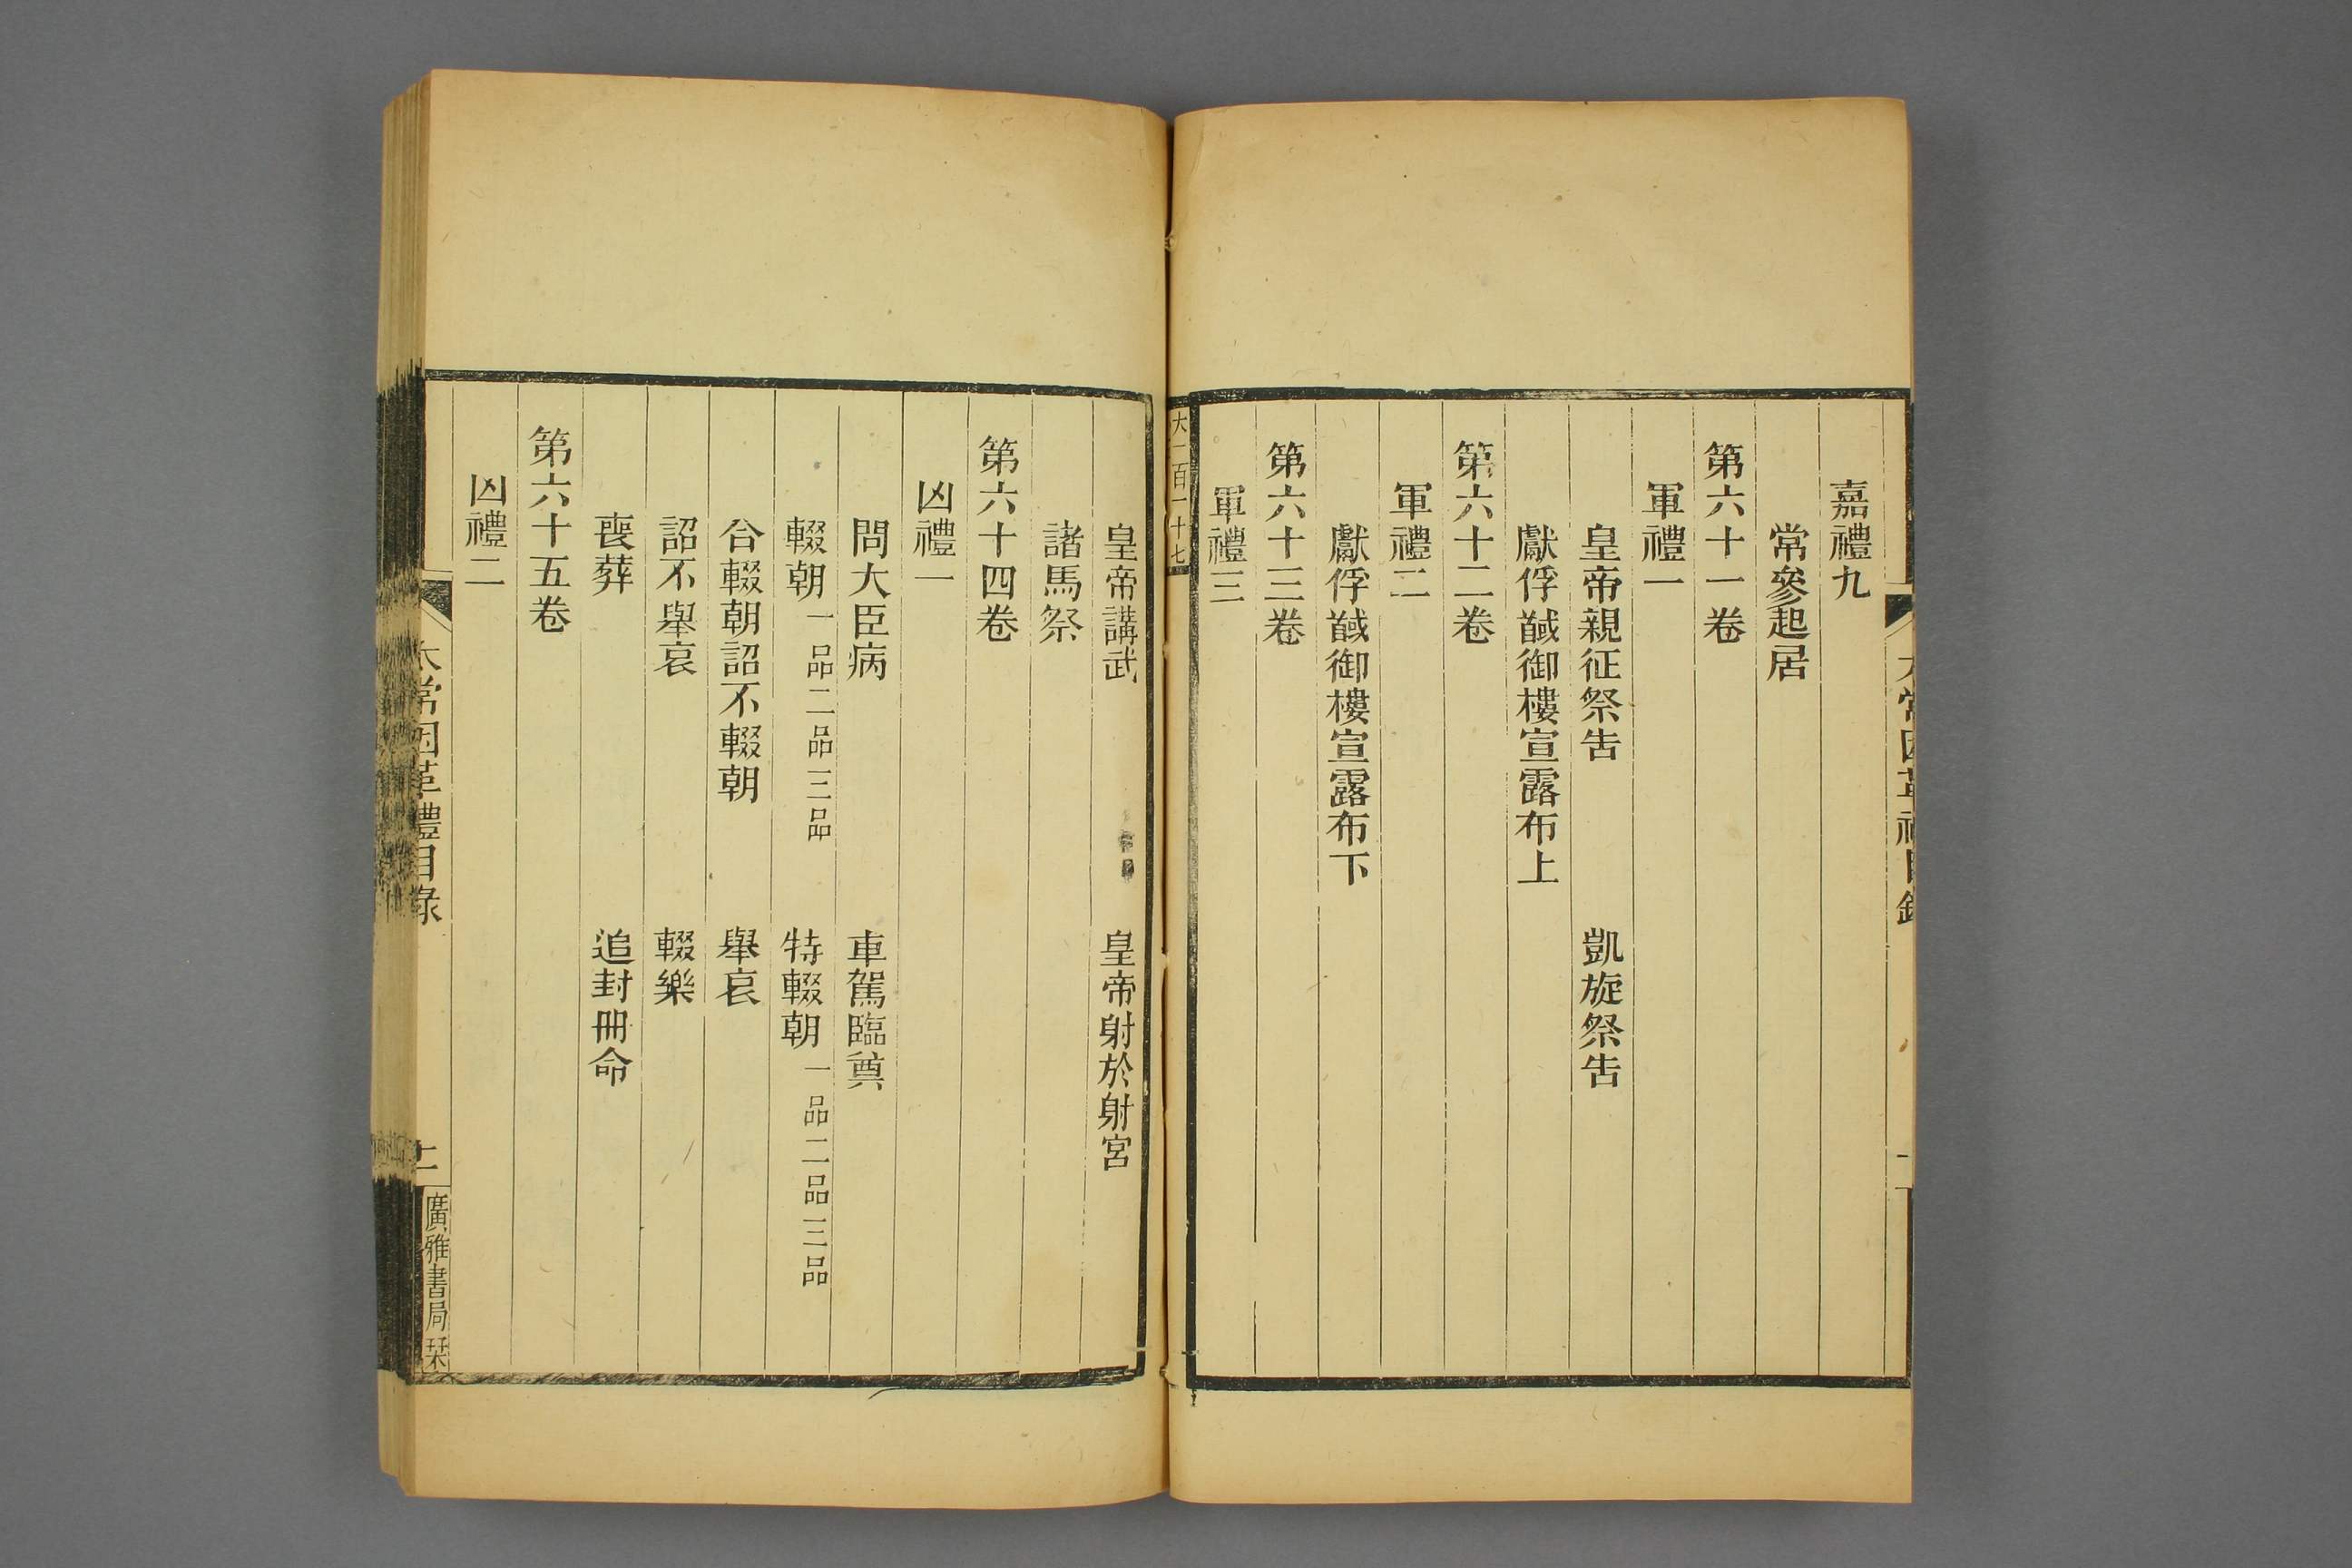 嘉禮九
常參起居
第六十一卷
軍禮一
皇帝親征祭告　凱旋祭告
獻俘馘御樓宣露布上
第六十二卷
軍禮二
獻俘馘御樓宣露布下
第六十三卷
軍禮三
大一百一十七
皇帝講武　皇帝射於射宮
諸馬祭
第六十四卷
凶禮一
問大臣病　車駕臨奠
輟朝一品二品三品　特輟朝一品二品三品
合輟朝詔不輟朝　舉哀
詔不舉哀　輟樂
喪葬　追封冊命
第六十五卷
凶禮二
太常因革禮目錄
十二
廣雅書局栞